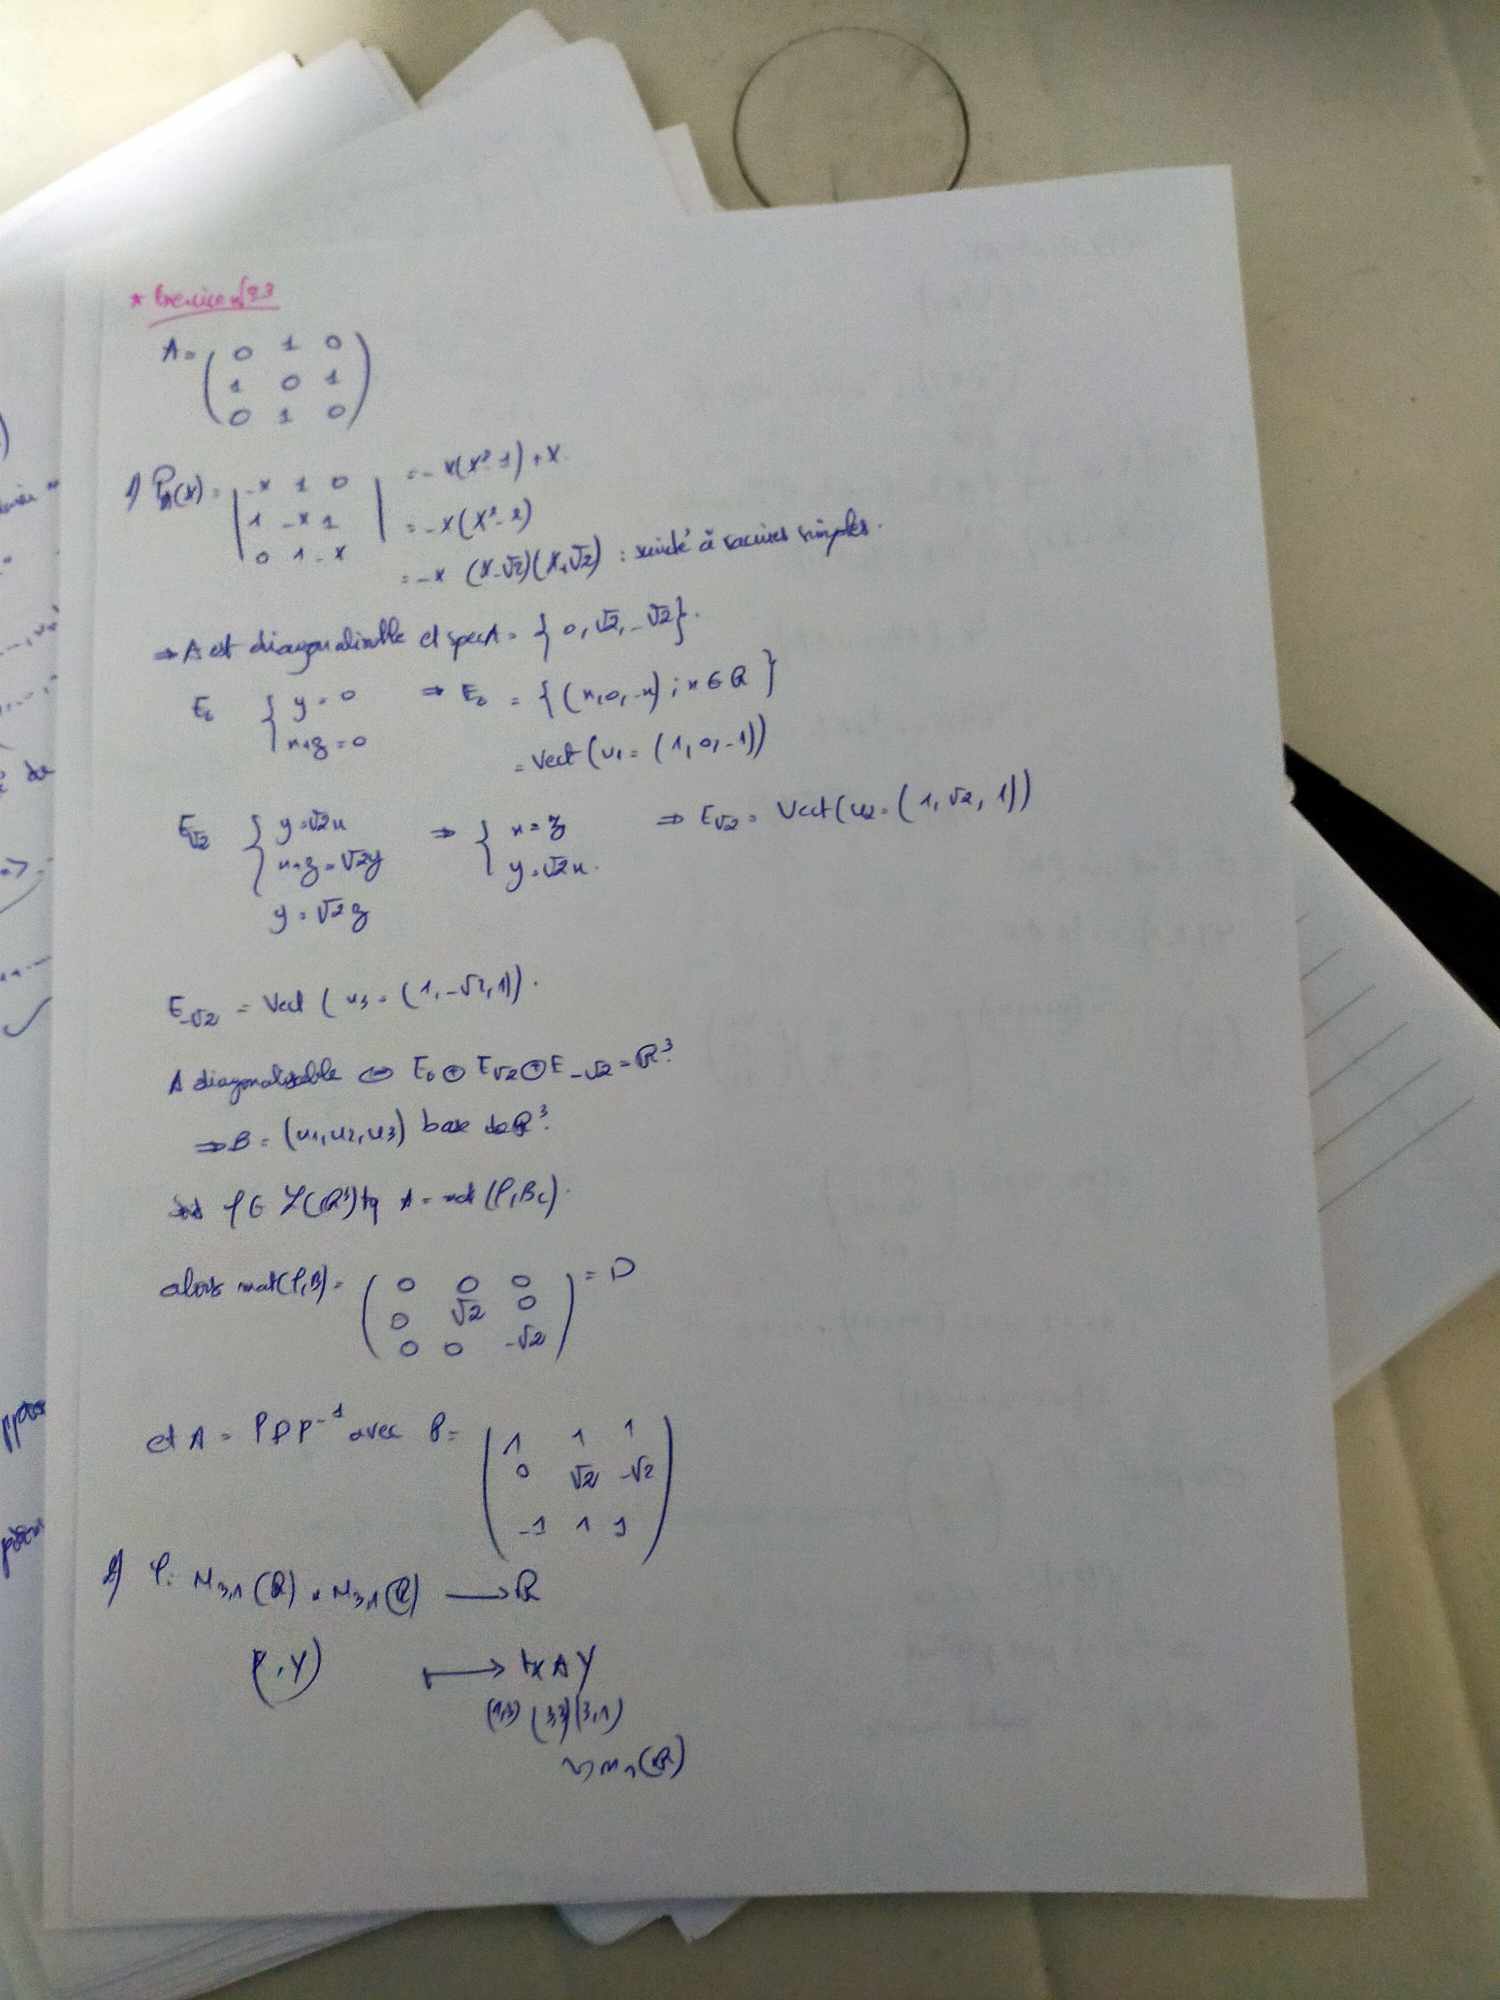 * Exercice n°23
A = ( 0 1 0
1 0 1
0 1 0 )
1) P_A(X) = | -X 1 0
1 -X 1
0 1 -X | = -X(X²-1)+X.
= -X(X²-2)
= -X (X-√2)(X+√2) : scindé à racines simples.
⇒ A est diagonalisable et spec A = {0, √2, -√2}.
E₀ { y = 0 ⇒ E₀ = {(x,0,-x) ; x ∈ ℝ}
x+z = 0 = Vect(u₁ = (1,0,-1))
E_√2 { y = √2x ⇒ { x = z ⇒ E_√2 = Vect(u₂ = (1,√2,1))
x+z = √2y y = √2x.
y = √2z
E_-√2 = Vect (u₃ = (1,-√2,1)).
A diagonalisable ⇔ E₀ ⊕ E_√2 ⊕ E_-√2 = ℝ³.
⇒ B = (u₁,u₂,u₃) base de ℝ³.
f ∈ L(ℝ³) tq A = mat(f,Bc).
alors mat(f,B) = ( 0 0 0
0 √2 0
0 0 -√2 ) = D
et A = PDP⁻¹ avec P = ( 1 1 1
0 √2 -√2
-1 1 1 )
2) φ: M₃,₁(ℝ) × M₃,₁(ℝ) ⟶ ℝ
(X,Y) ⟼ ᵗX A Y
(1,3) (3,3) (3,1)
M₁(ℝ)